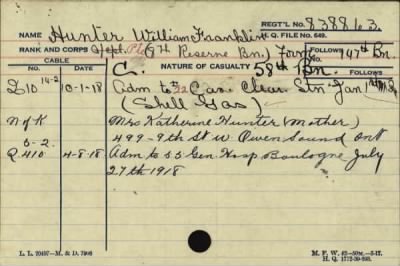 REGT'L NO. 838863
NAME Hunter William Franklin
H. Q. FILE NO. 649.
RANK AND CORPS Pte. (8th Reserve Bn.) Form 147th Bn.
FOLLOWS
CABLE
NO. DATE NATURE OF CASUALTY FOLLOWS
C. 58th Bn.
14-2
D10 10-1-18 Adm to 32 Cas. Clear. Stn. Jan 1st
(Shell Gas)
N of K Mrs Katherine Hunter (Mother)
499-9th St W Owen Sound Ont
5-2.
Q.410 4-8-18 Adm to 55 Gen Hosp Boulogne July
27th 1918
L. L. 20497—M. & D. 7906
M. F. W. 42—50M.—3-17.
H. Q. 1772-39-893.